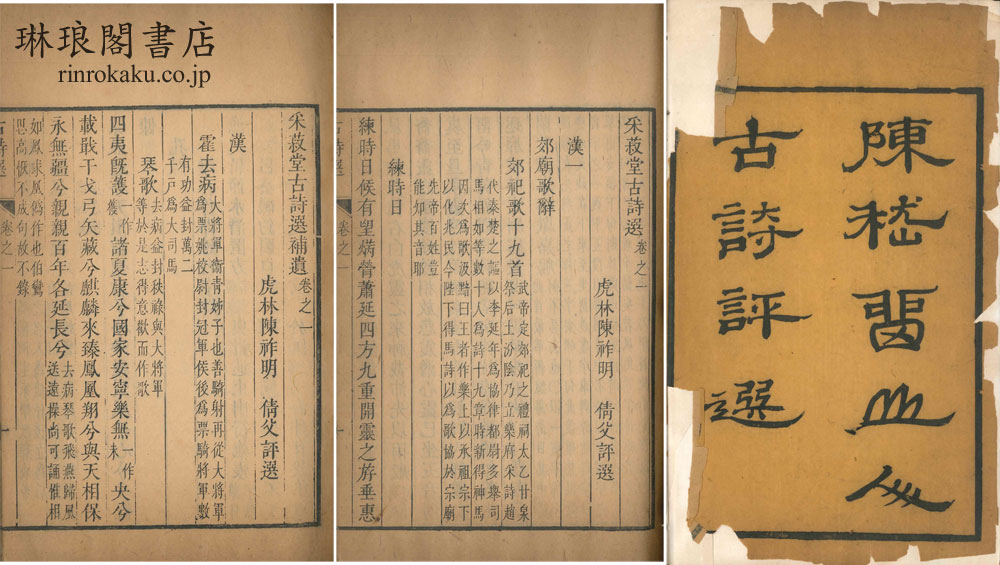 琳琅閣書店
rinrokaku.co.jp
陳嵇留山人
古詩評選
采菽堂古詩選 卷之一
虎林陳祚明 倩父評選
漢一
郊廟歌辭
郊祀歌十九首 武帝定郊祀之禮祠太乙甘泉
祭后土汾陰乃立樂府采詩趙
代秦楚之謳以李延年爲協律都尉多舉司
馬相如等數十人爲詩十九章時新得神馬
因次爲歌汲黯曰王者作樂上以承祖宗下
以化兆民今陛下得馬詩以爲歌協於宗廟
先帝百姓豈
能知其音耶
練時日
練時日候有望焫膋蕭延四方九重開靈之斿垂惠
采菽堂古詩選補遺 卷之一
虎林陳祚明 倩父評選
漢
霍去病 大將軍衞青姊子也善騎射再從大將軍
爲票姚校尉封冠軍侯後爲票騎將軍數
有功益封萬二
千戶爲大司馬
琴歌 去病益封秩祿與大將軍
等於是志得意歡而作歌
四夷旣護 一作獲 諸夏康兮國家安寧樂無 一作未 央兮
載戢干戈弓矢藏兮麒麟來臻鳳凰翔兮與天相保
永無疆兮親親百年各延長兮 去病琴歌飛燕歸風
送遠操尚可誦催相
如鳳求凰僞作也伯鸞
思高恢不成句故不錄
古詩選 卷之一